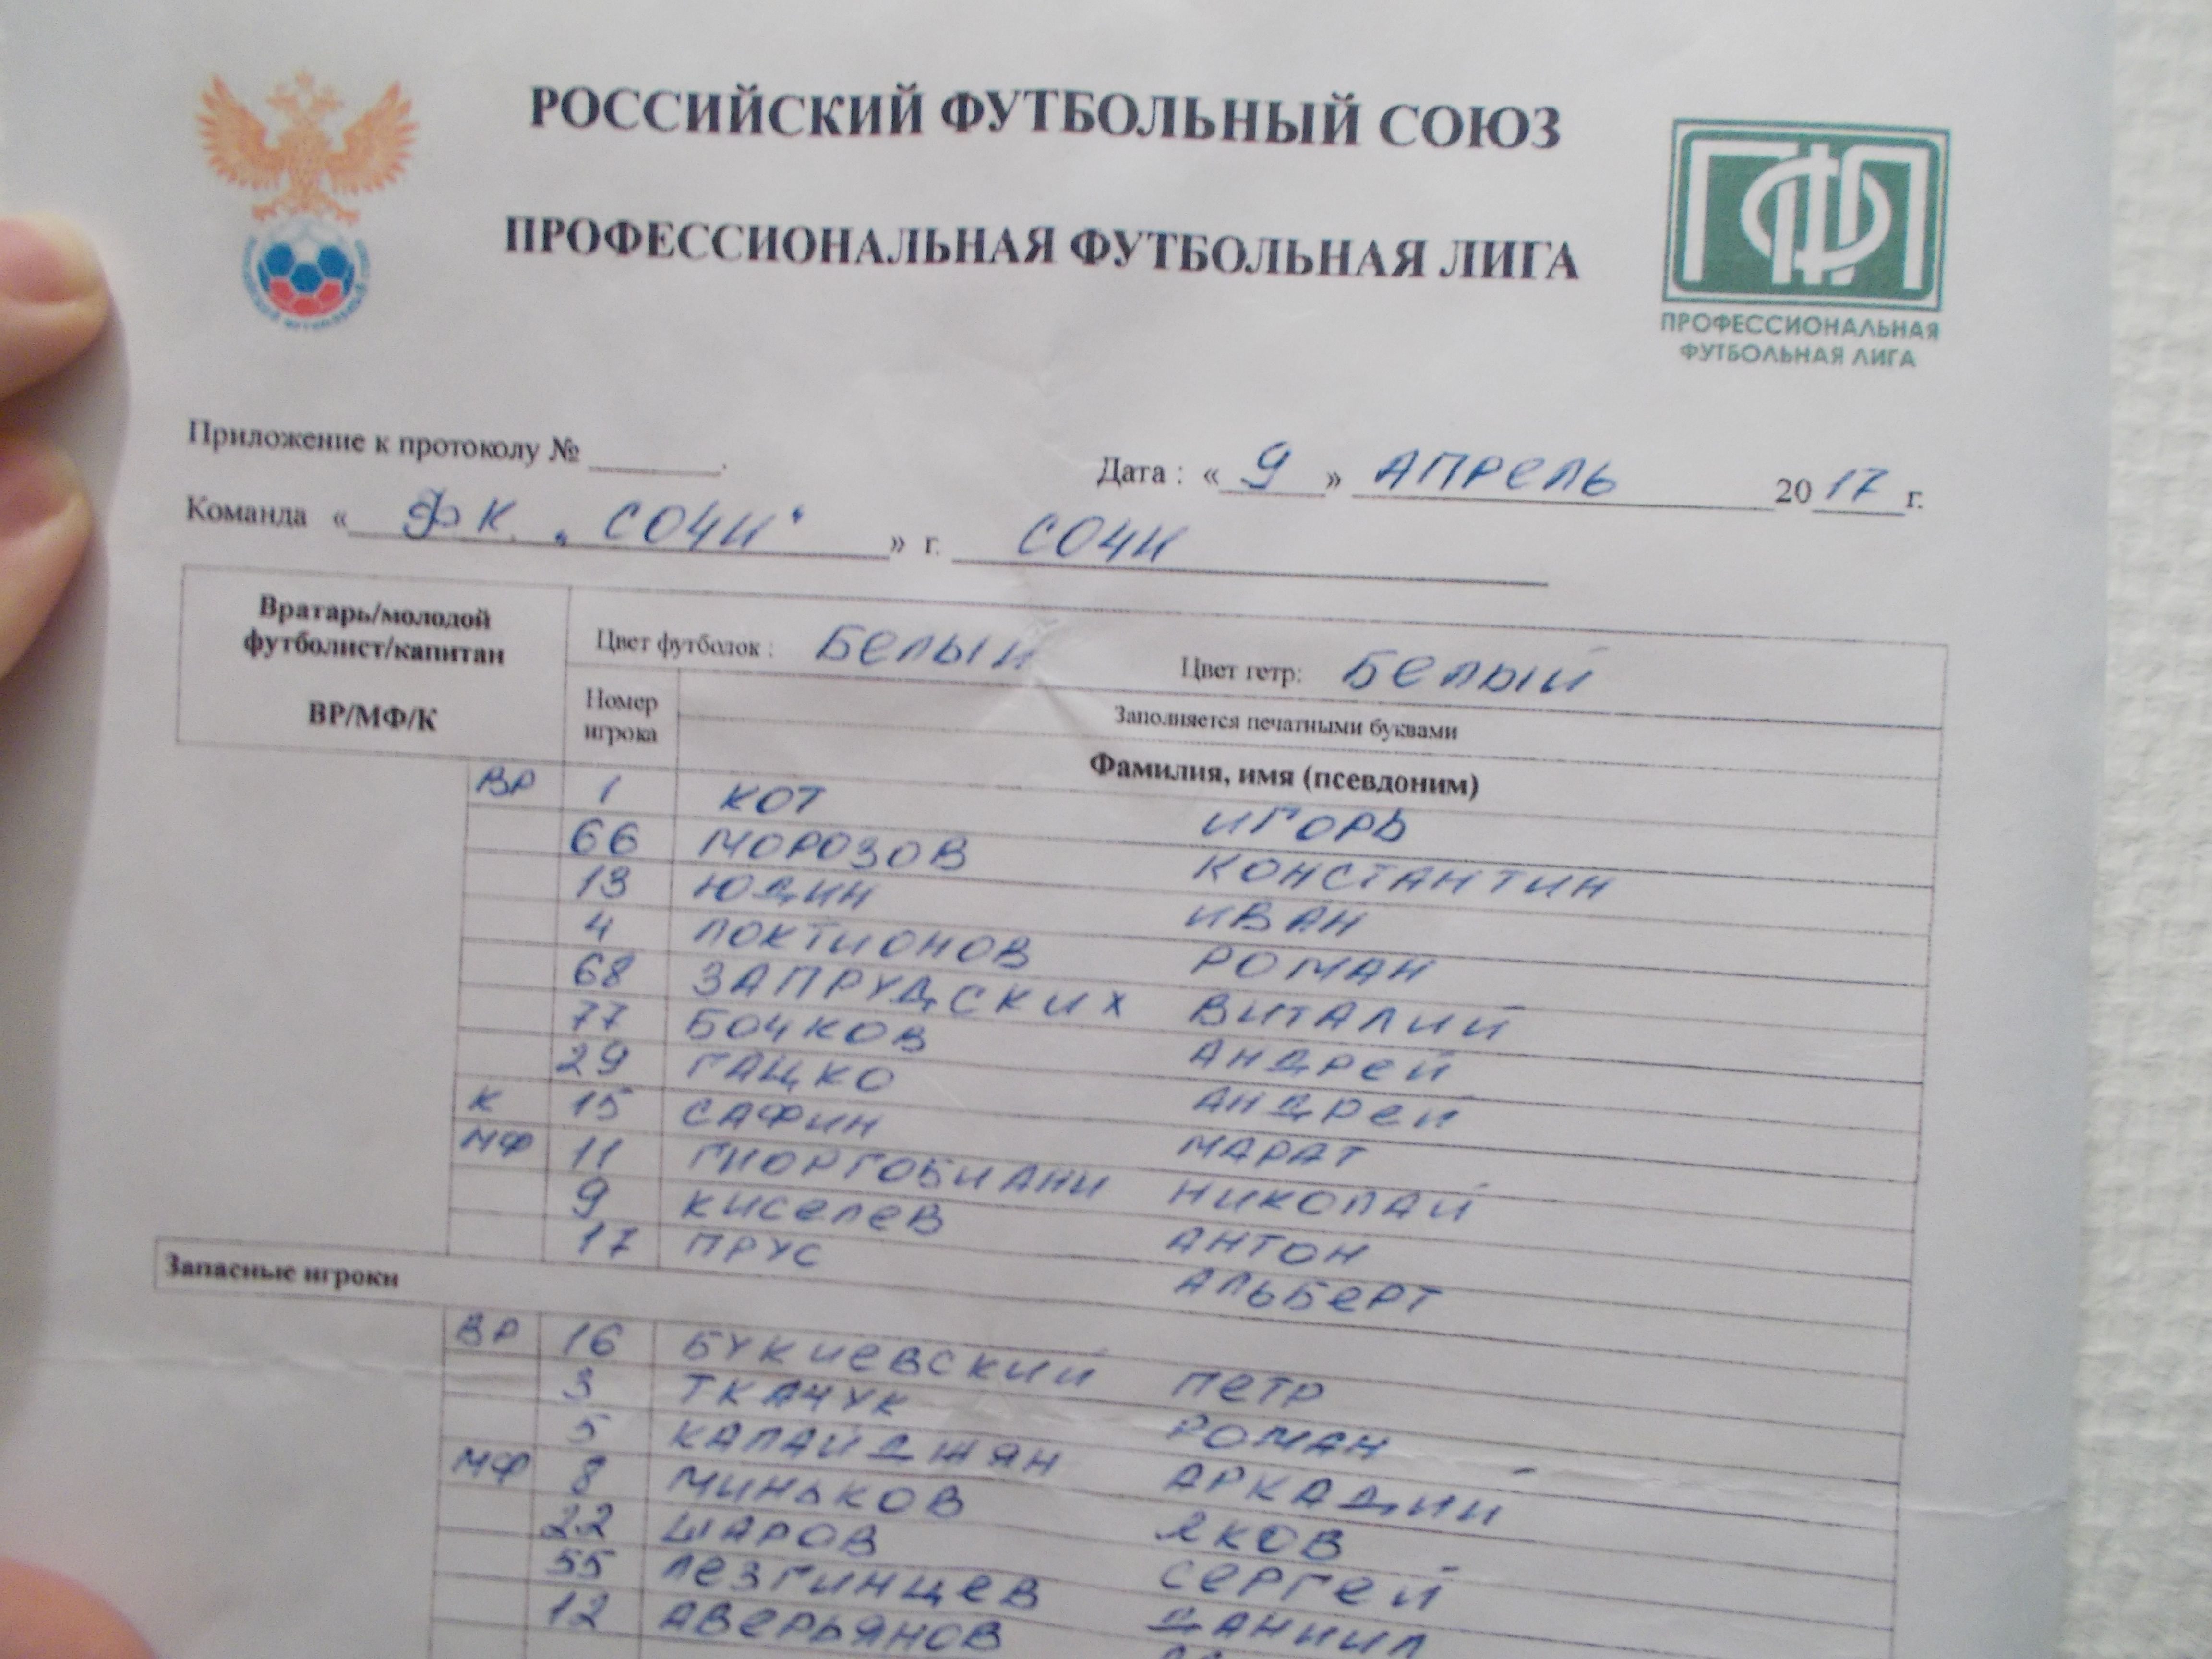 РОССИЙСКИЙ ФУТБОЛЬНЫЙ СОЮЗ
ПРОФЕССИОНАЛЬНАЯ ФУТБОЛЬНАЯ ЛИГА
ПФЛ
ПРОФЕССИОНАЛЬНАЯ
ФУТБОЛЬНАЯ ЛИГА
Приложение к протоколу № ________.
Дата : « 9 » АПРЕЛЬ 2017 г.
Команда « ФК „СОЧИ“ » г. СОЧИ
Вратарь/молодой
футболист/капитан
ВР/МФ/К
Цвет футболок : БЕЛЫЙ Цвет гетр: БЕЛЫЙ
Номер
игрока
Заполняется печатными буквами
Фамилия, имя (псевдоним)
ВР 1 КОТ ИГОРЬ
66 МОРОЗОВ КОНСТАНТИН
13 ЮДИН ИВАН
4 ЛОКТИОНОВ РОМАН
68 ЗАПРУДСКИХ ВИТАЛИЙ
77 БОЧКОВ АНДРЕЙ
29 ГАЦКО АНДРЕЙ
К 15 САФИН МАРАТ
МФ 11 ГИОРГОБИАНИ НИКОЛАЙ
9 КИСЕЛЕВ АНТОН
17 ПРУС АЛЬБЕРТ
Запасные игроки
ВР 16 БУКИЕВСКИЙ ПЕТР
3 ТКАЧУК РОМАН
5 КАЛАЙДЖЯН АРКАДИЙ
МФ 8 МИНЬКОВ ЯКОВ
22 ШАРОВ СЕРГЕЙ
55 ЛЕЗГИНЦЕВ ДАНИИЛ
12 АВЕРЬЯНОВ